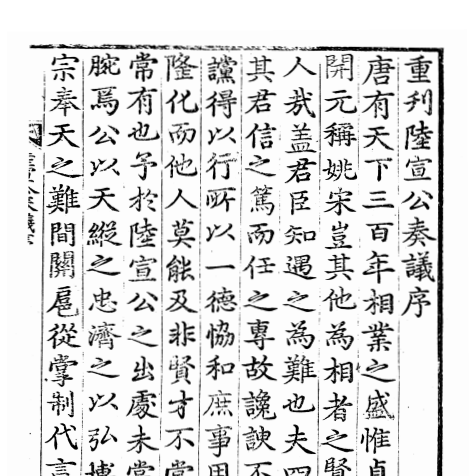 重刋陸宣公奏議序
唐有天下三百年相業之盛惟貞
開元稱姚宋豈其他為相者之賢
人哉盖君臣知遇之為難也夫
其君信之篤而任之專故讒諛不
讜得以行所以一德恊和庶事
隆化而他人莫能及非賢才不常
常有也予於陸宣公之出處未嘗
腕焉公以天縱之忠濟之以弘博
宗奉天之難間關扈從掌制代言